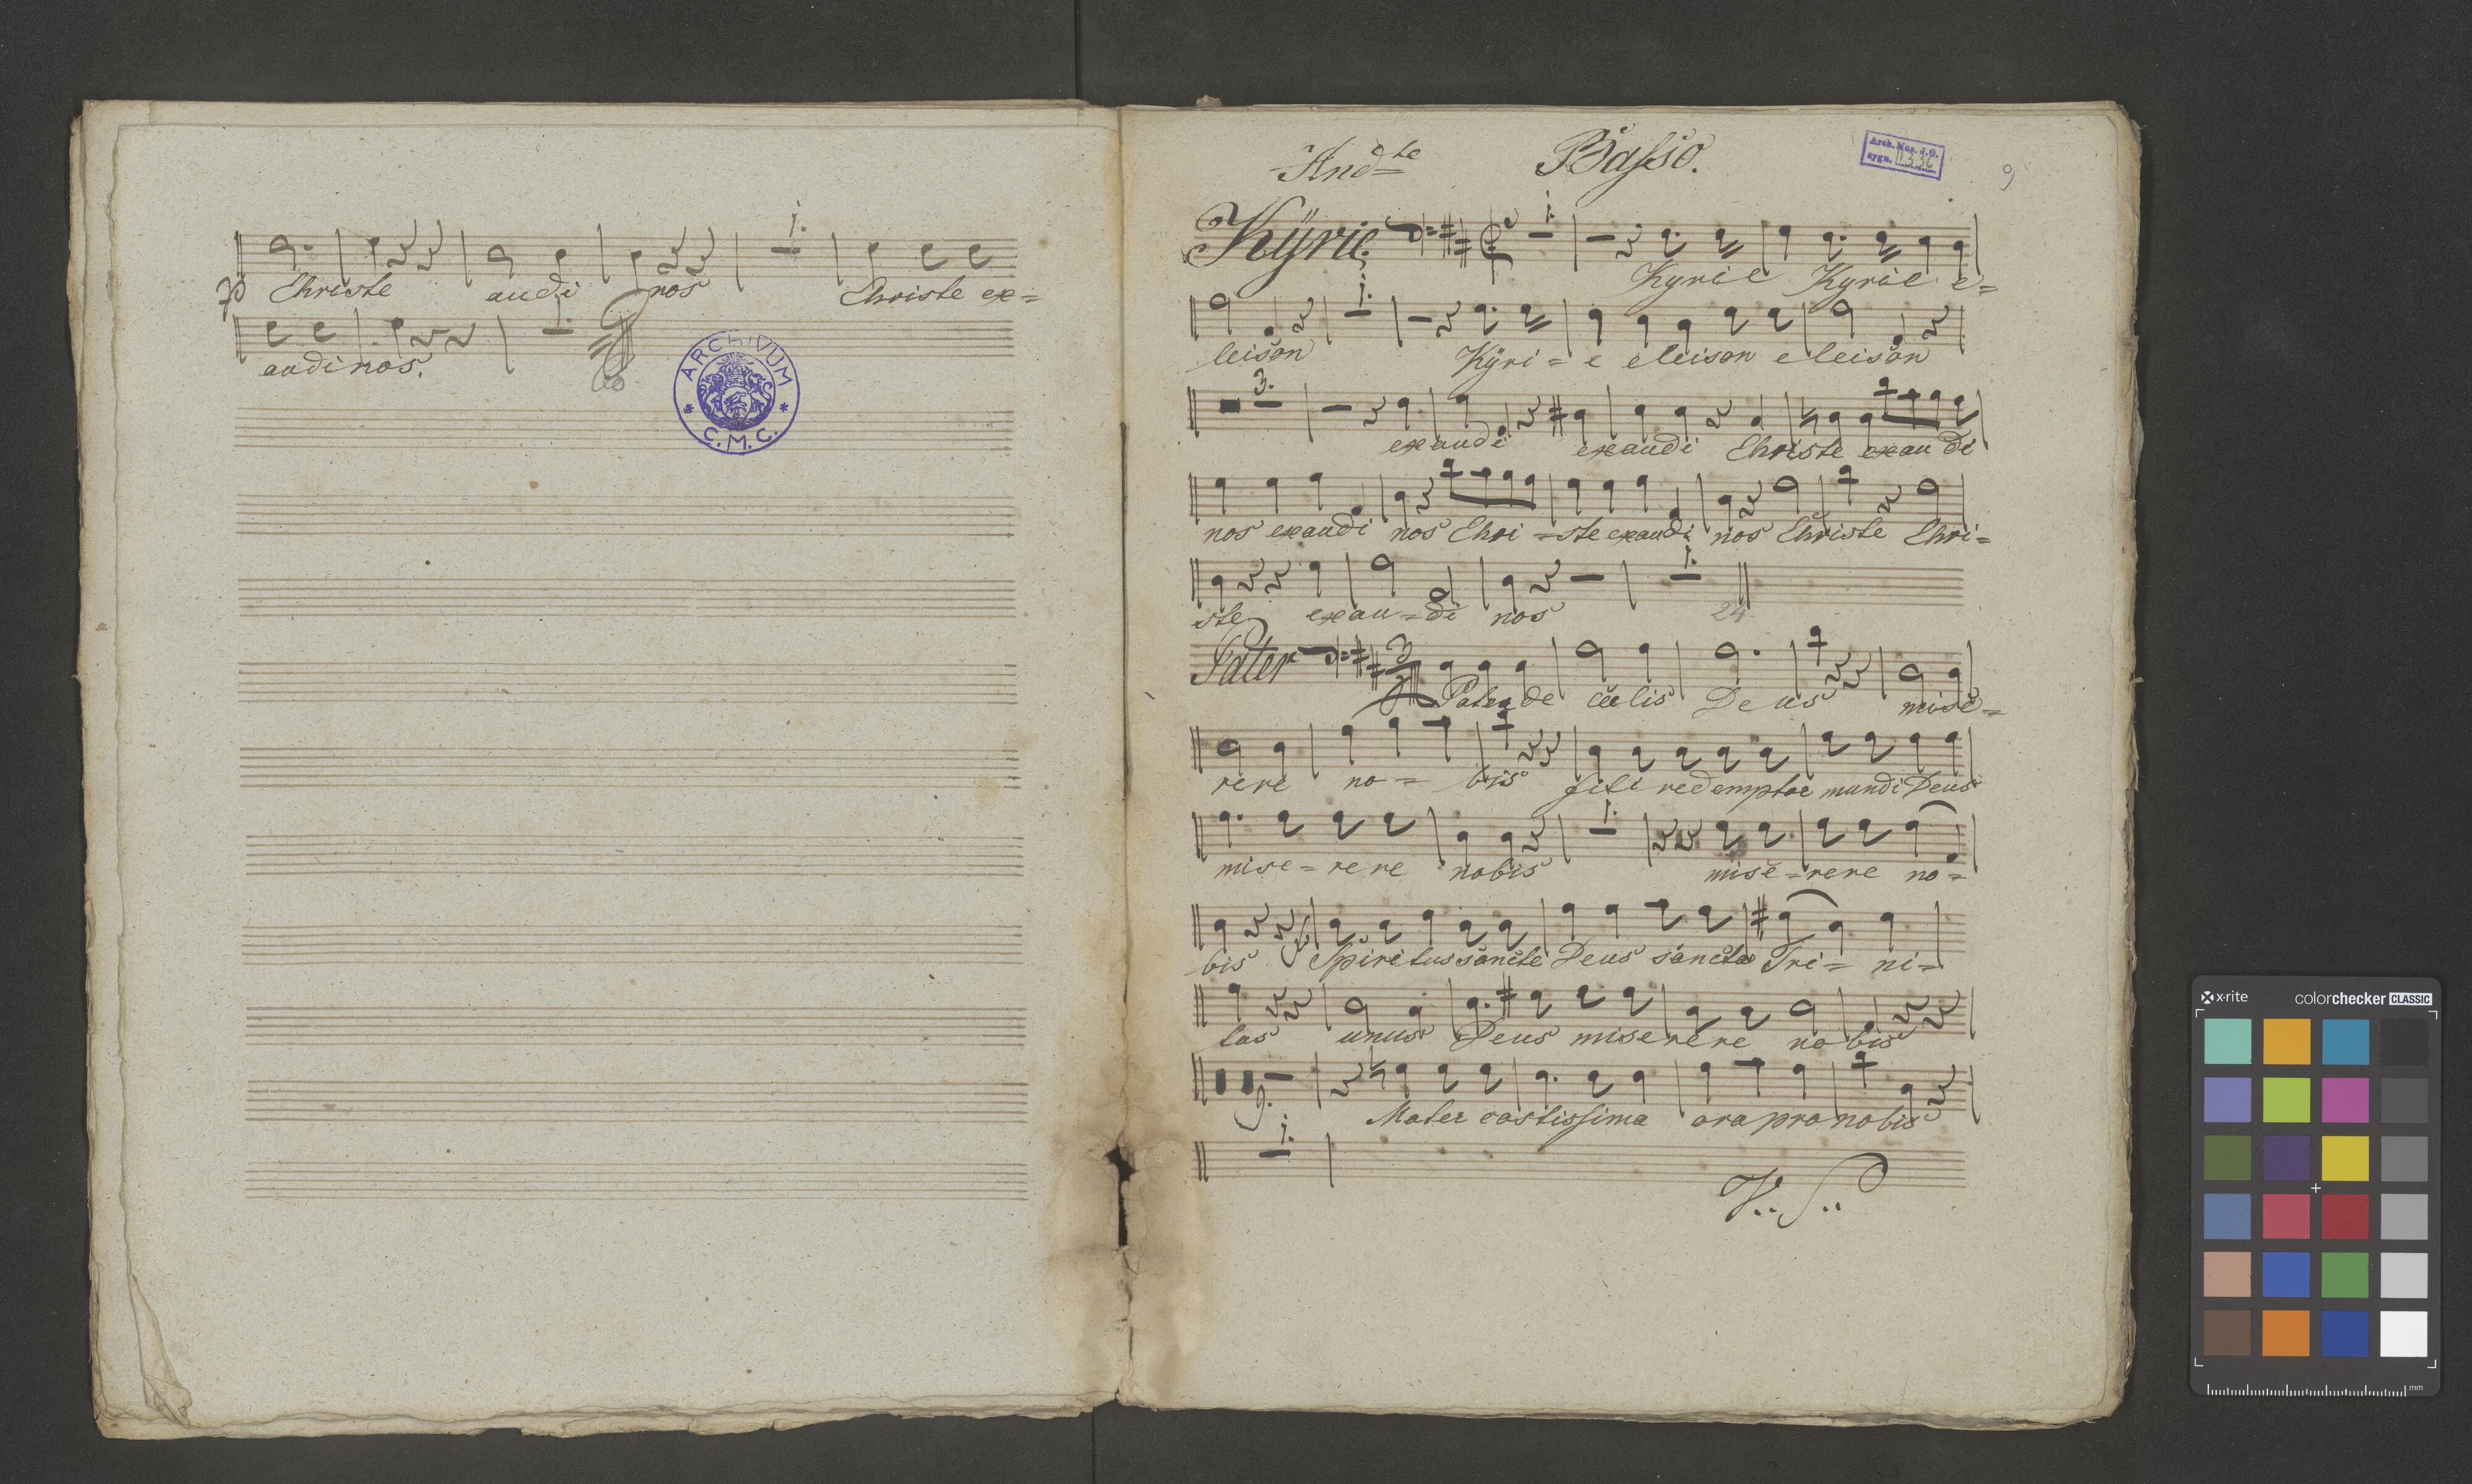 1.
p Christe audi nos Christe ex=
1.
audi nos.
ARCHIVUM
* C. M. C. *
And:te Basso.
Arch. Muz. J. G.
sygn. II 336
9
Kÿrie. 1.
Kyrie Kyrie e=
1.
leison Kÿri=e eleison eleison
3.
exaudi exaudi Christe exaudi
nos exaudi nos Chri=ste exaudi nos Christe Chri=
1.
ste exau=di nos
24
Pater 3
Pater de cœlis Deus mise=
rere no=bis fili redemptor mundi Deus
1.
mise=rere nobis mise=rere no=
bis Spiritus sancte Deus sancta Tri=ni=
tas unus Deus miserere nobis
9.
Mater castissima ora pro nobis
1.
V.. S..
x-rite colorchecker CLASSIC
mm